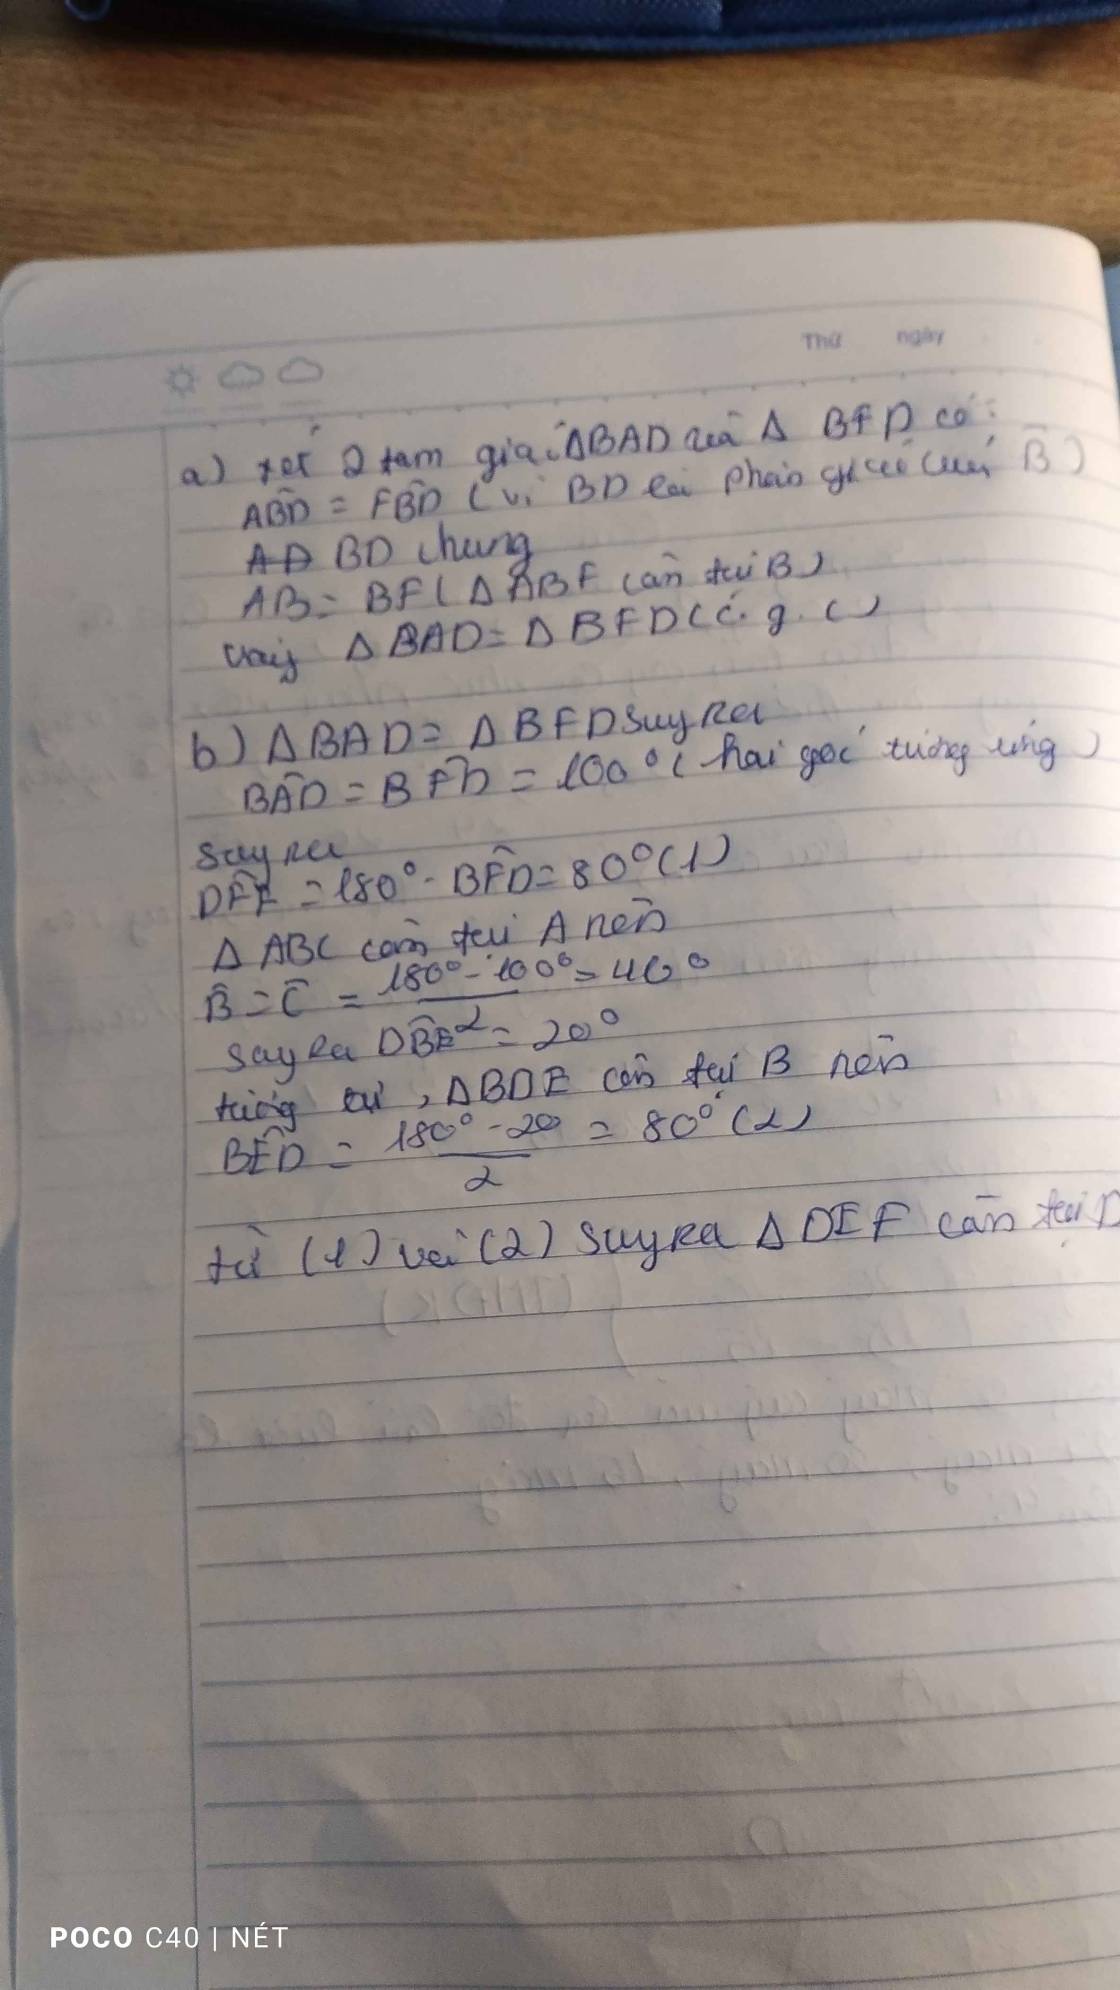 Thứ ngày
a) xét 2 tam giác ΔBAD và Δ BFD có:
AB̂D = FB̂D ( vì BD là phân giác của B̂ )
AD BD chung
AB = BF ( Δ ABF cân tại B )
vậy Δ BAD = Δ BFD ( c. g. c )
b) Δ BAD = Δ BFD suy ra
BÂD = BF̂D = 100° ( hai góc tương ứng )
suy ra
DF̂E = 180° - BF̂D = 80° (1)
Δ ABC cân tại A nên
B̂ = Ĉ = 180° - 100° = 40°
2
suy ra DB̂E = 20°
tương tự , ΔBDE cân tại B nên
BÊD = 180° - 20 = 80° (2)
2
từ (1) và (2) suy ra Δ DEF cân tại D
POCO C40 | NÉT